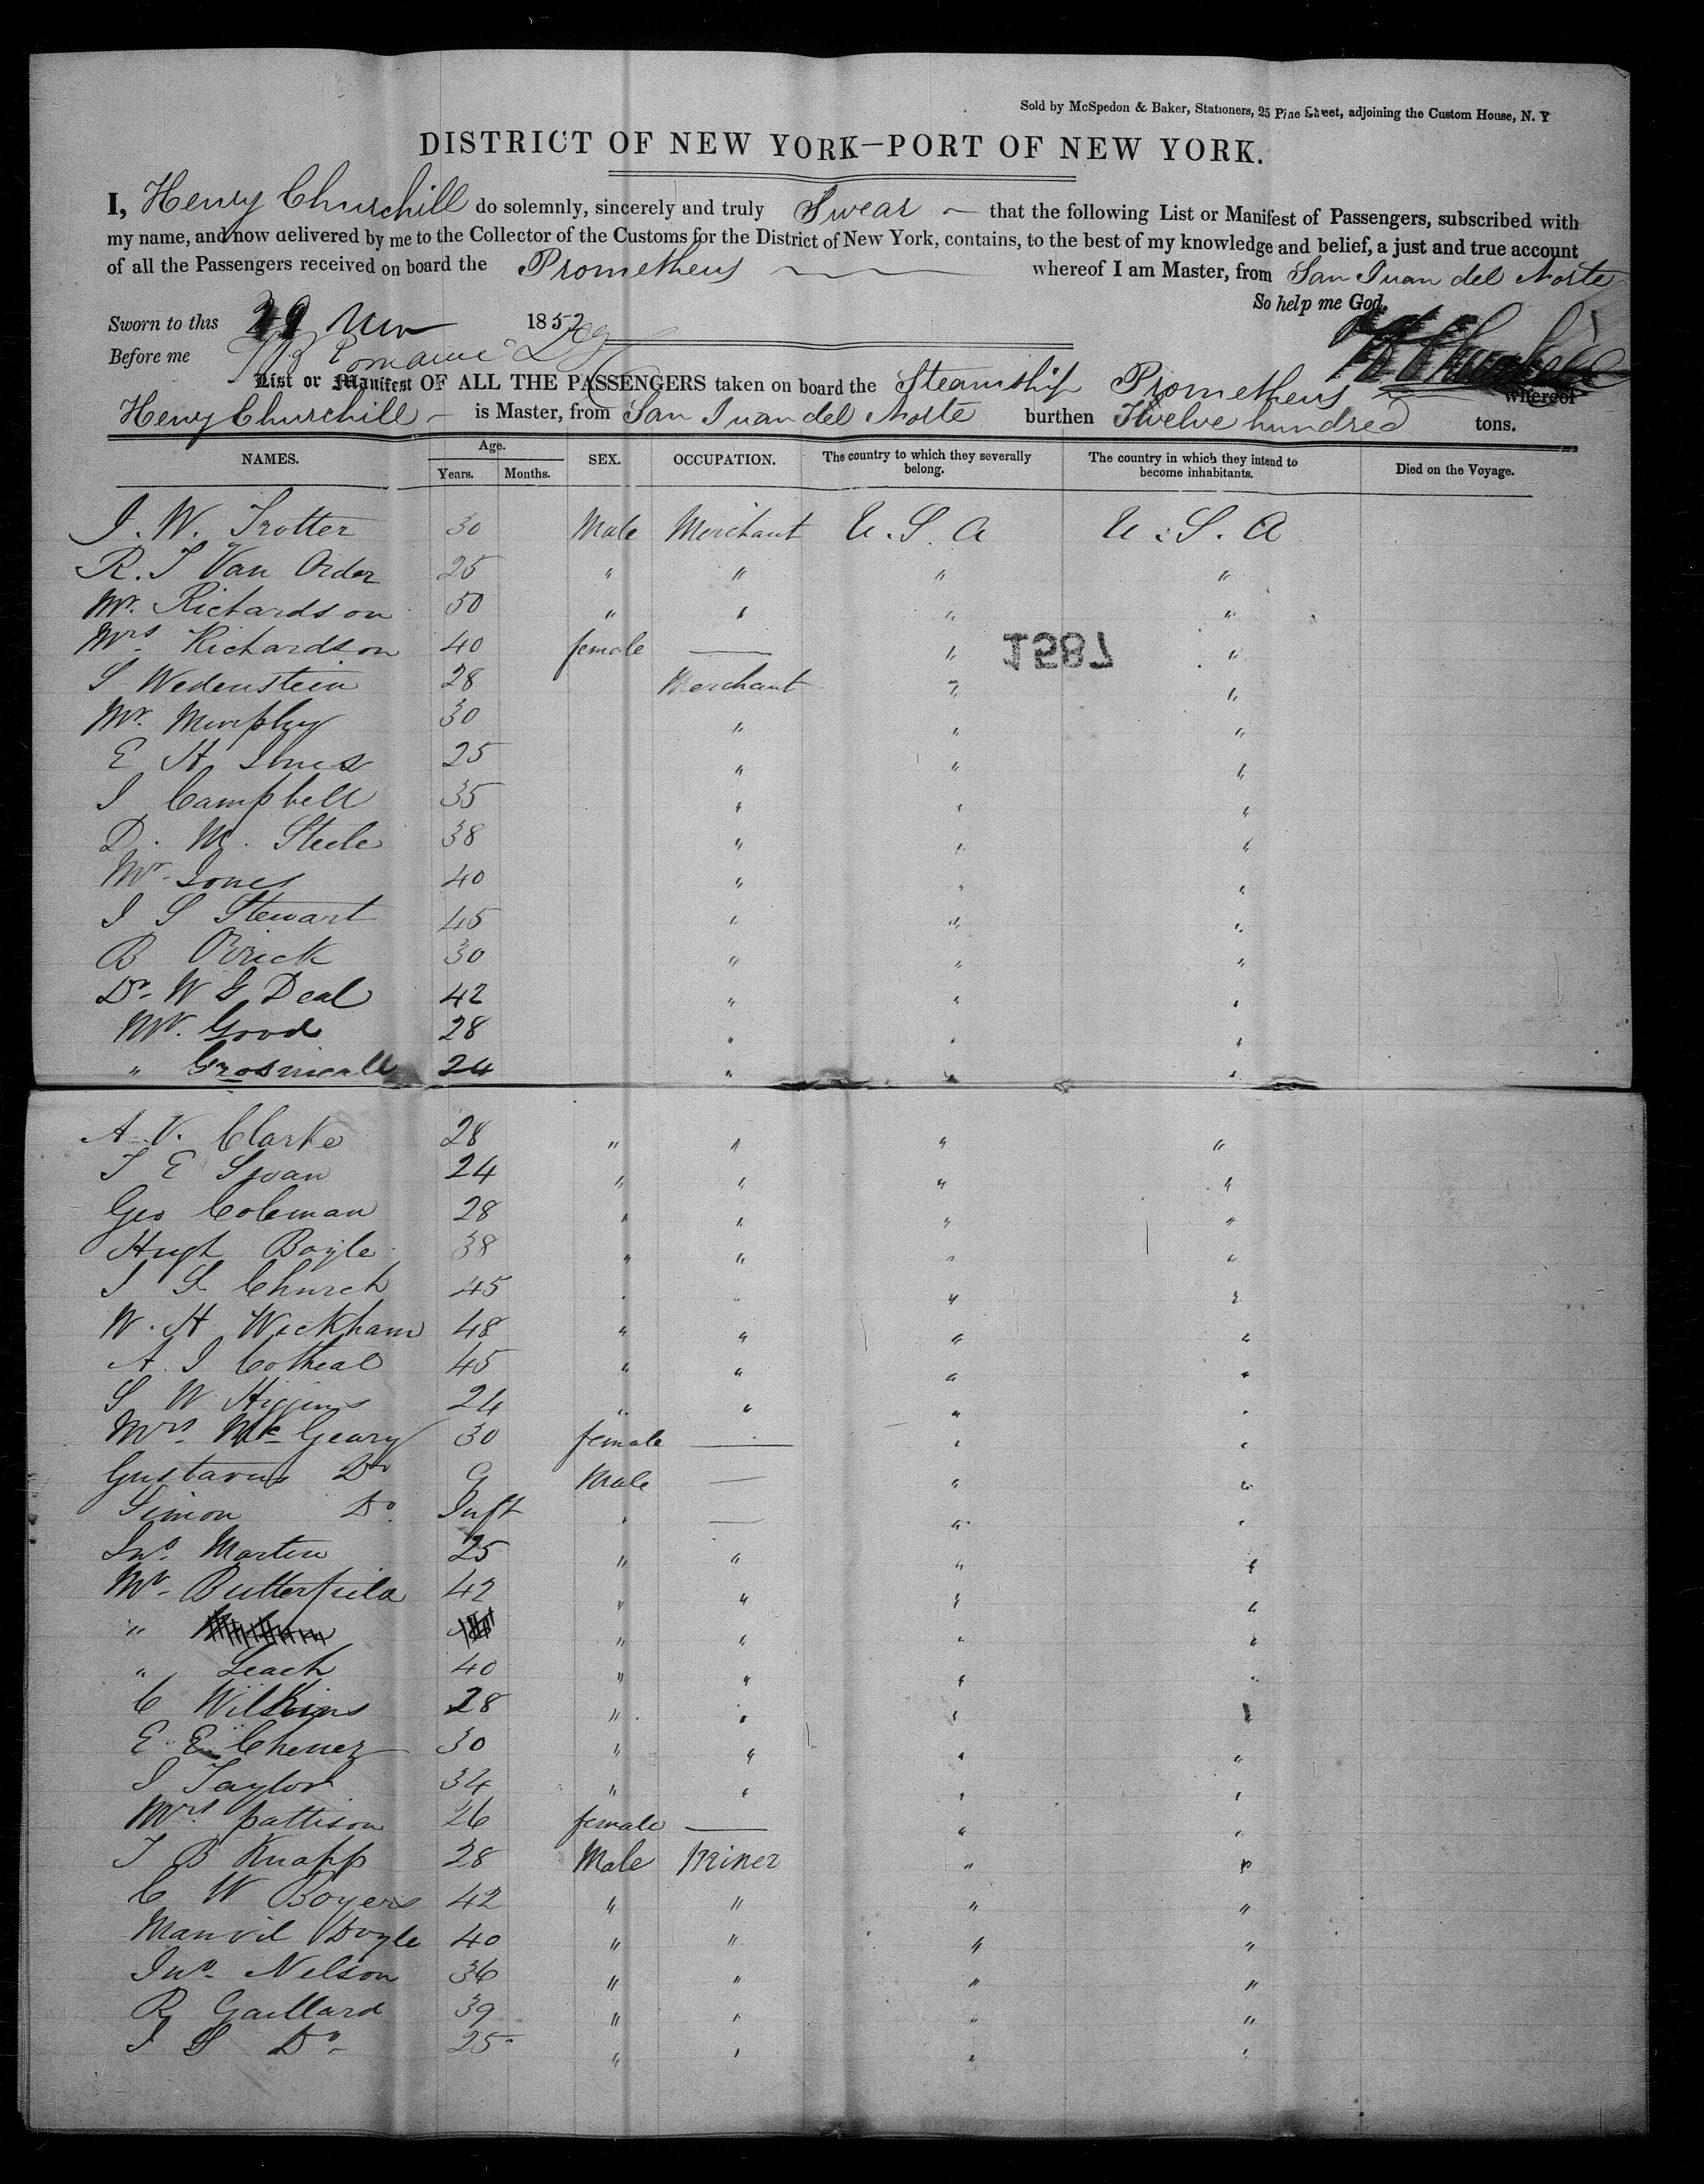 Sold by McSpedon & Baker, Stationers, 25 Pine Street, adjoining the Custom House, N. Y
DISTRICT OF NEW YORK—PORT OF NEW YORK.
I, Henry Churchill do solemnly, sincerely and truly Swear that the following List or Manifest of Passengers, subscribed with
my name, and now delivered by me to the Collector of the Customs for the District of New York, contains, to the best of my knowledge and belief, a just and true account
of all the Passengers received on board the Prometheus whereof I am Master, from San Juan del Norte
So help me God.
Sworn to this 29 1852
Before me
List or Manifest OF ALL THE PASSENGERS taken on board the Steamship Prometheus whereof
Henry Churchill is Master, from San Juan del Norte burthen Twelve hundred tons.
NAMES. Age. Years. Months. SEX. OCCUPATION. The country to which they severally belong. The country in which they intend to become inhabitants. Died on the Voyage.
J. W. Trotter 30 Male Merchant U. S. A U. S. A
R. T Van Order 25 " " " "
Mr. Richardson 50 " " " "
Mrs Richardson 40 female — " "
1587
S Wedenstein 28 Merchant " "
Mr. Murphy 30 " " "
E H 25 " " "
J Campbell 35 " " "
D. M. Steele 38 " " "
Mr. Jones 40 " " "
J S Stewart 45 " " "
B 30 " " "
Dr. W G Deal 42 " " "
Mr. Good 28 " " "
" 24 " " "
A. V. Clarke 28 " " " "
T E Swan 24 " " " "
Geo Coleman 28 " " " "
Hugh Boyle 38 " " " "
J S Church 45 " " " "
W. H Wickham 48 " " " "
A. J Cotheal 45 " " " "
S W Higgins 24 " " " "
Mrs. McGeary 30 female — " "
Gustavus Do Male — " "
Simon Do. Inft " — " "
Jno. Martin 25 " " " "
Mr. Butterfield 42 " " " "
" " " " "
" Leach 40 " " " "
C Wilkins 28 " " " "
E E 30 " " " "
J Taylor 34 " " " "
Mrs. pattison 26 female — " "
T B Knapp 28 Male Miner " "
C W Boyers 42 " " " "
Manvil Doyle 40 " " " "
Jno. Nelson 36 " " " "
R Gaillard 39 " " " "
J S Do. 25 " " " "